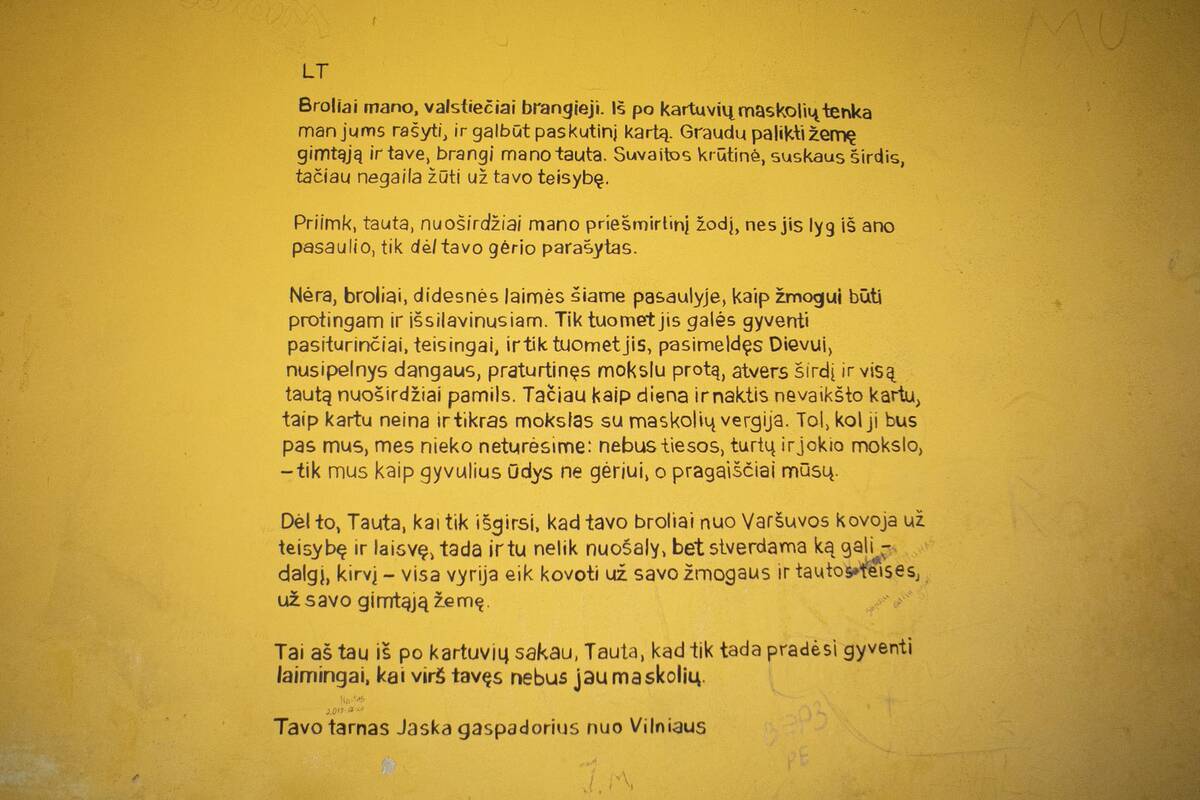 LT
Broliai mano, valstiečiai brangieji. Iš po kartuvių maskolių tenka
man jums rašyti, ir galbūt paskutinį kartą. Graudu palikti žemę
gimtąją ir tave, brangi mano tauta. Suvaitos krūtinė, suskaus širdis,
tačiau negaila žūti už tavo teisybę.
Priimk, tauta, nuoširdžiai mano priešmirtinį žodį, nes jis lyg iš ano
pasaulio, tik dėl tavo gėrio parašytas.
Nėra, broliai, didesnės laimės šiame pasaulyje, kaip žmogui būti
protingam ir išsilavinusiam. Tik tuomet jis galės gyventi
pasiturinčiai, teisingai, ir tik tuomet jis, pasimeldęs Dievui,
nusipelnys dangaus, praturtinęs mokslu protą, atvers širdį ir visą
tautą nuoširdžiai pamils. Tačiau kaip diena ir naktis nevaikšto kartu,
taip kartu neina ir tikras mokslas su maskolių vergija. Tol, kol ji bus
pas mus, mes nieko neturėsime: nebus tiesos, turtų ir jokio mokslo,
– tik mus kaip gyvulius ūdys ne gėriui, o pragaiščiai mūsų.
Dėl to, Tauta, kai tik išgirsi, kad tavo broliai nuo Varšuvos kovoja už
teisybę ir laisvę, tada ir tu nelik nuošaly, bet stverdama ką gali –
dalgį, kirvį – visa vyrija eik kovoti už savo žmogaus ir tautos teises,
už savo gimtąją žemę.
Tai aš tau iš po kartuvių sakau, Tauta, kad tik tada pradėsi gyventi
laimingai, kai virš tavęs nebus jau maskolių.
Tavo tarnas Jaska gaspadorius nuo Vilniaus
MU
PE
J.M.